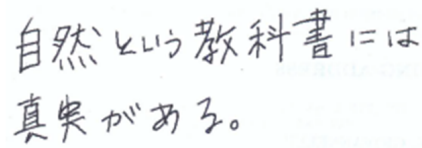 自然という教科書には
真実がある。